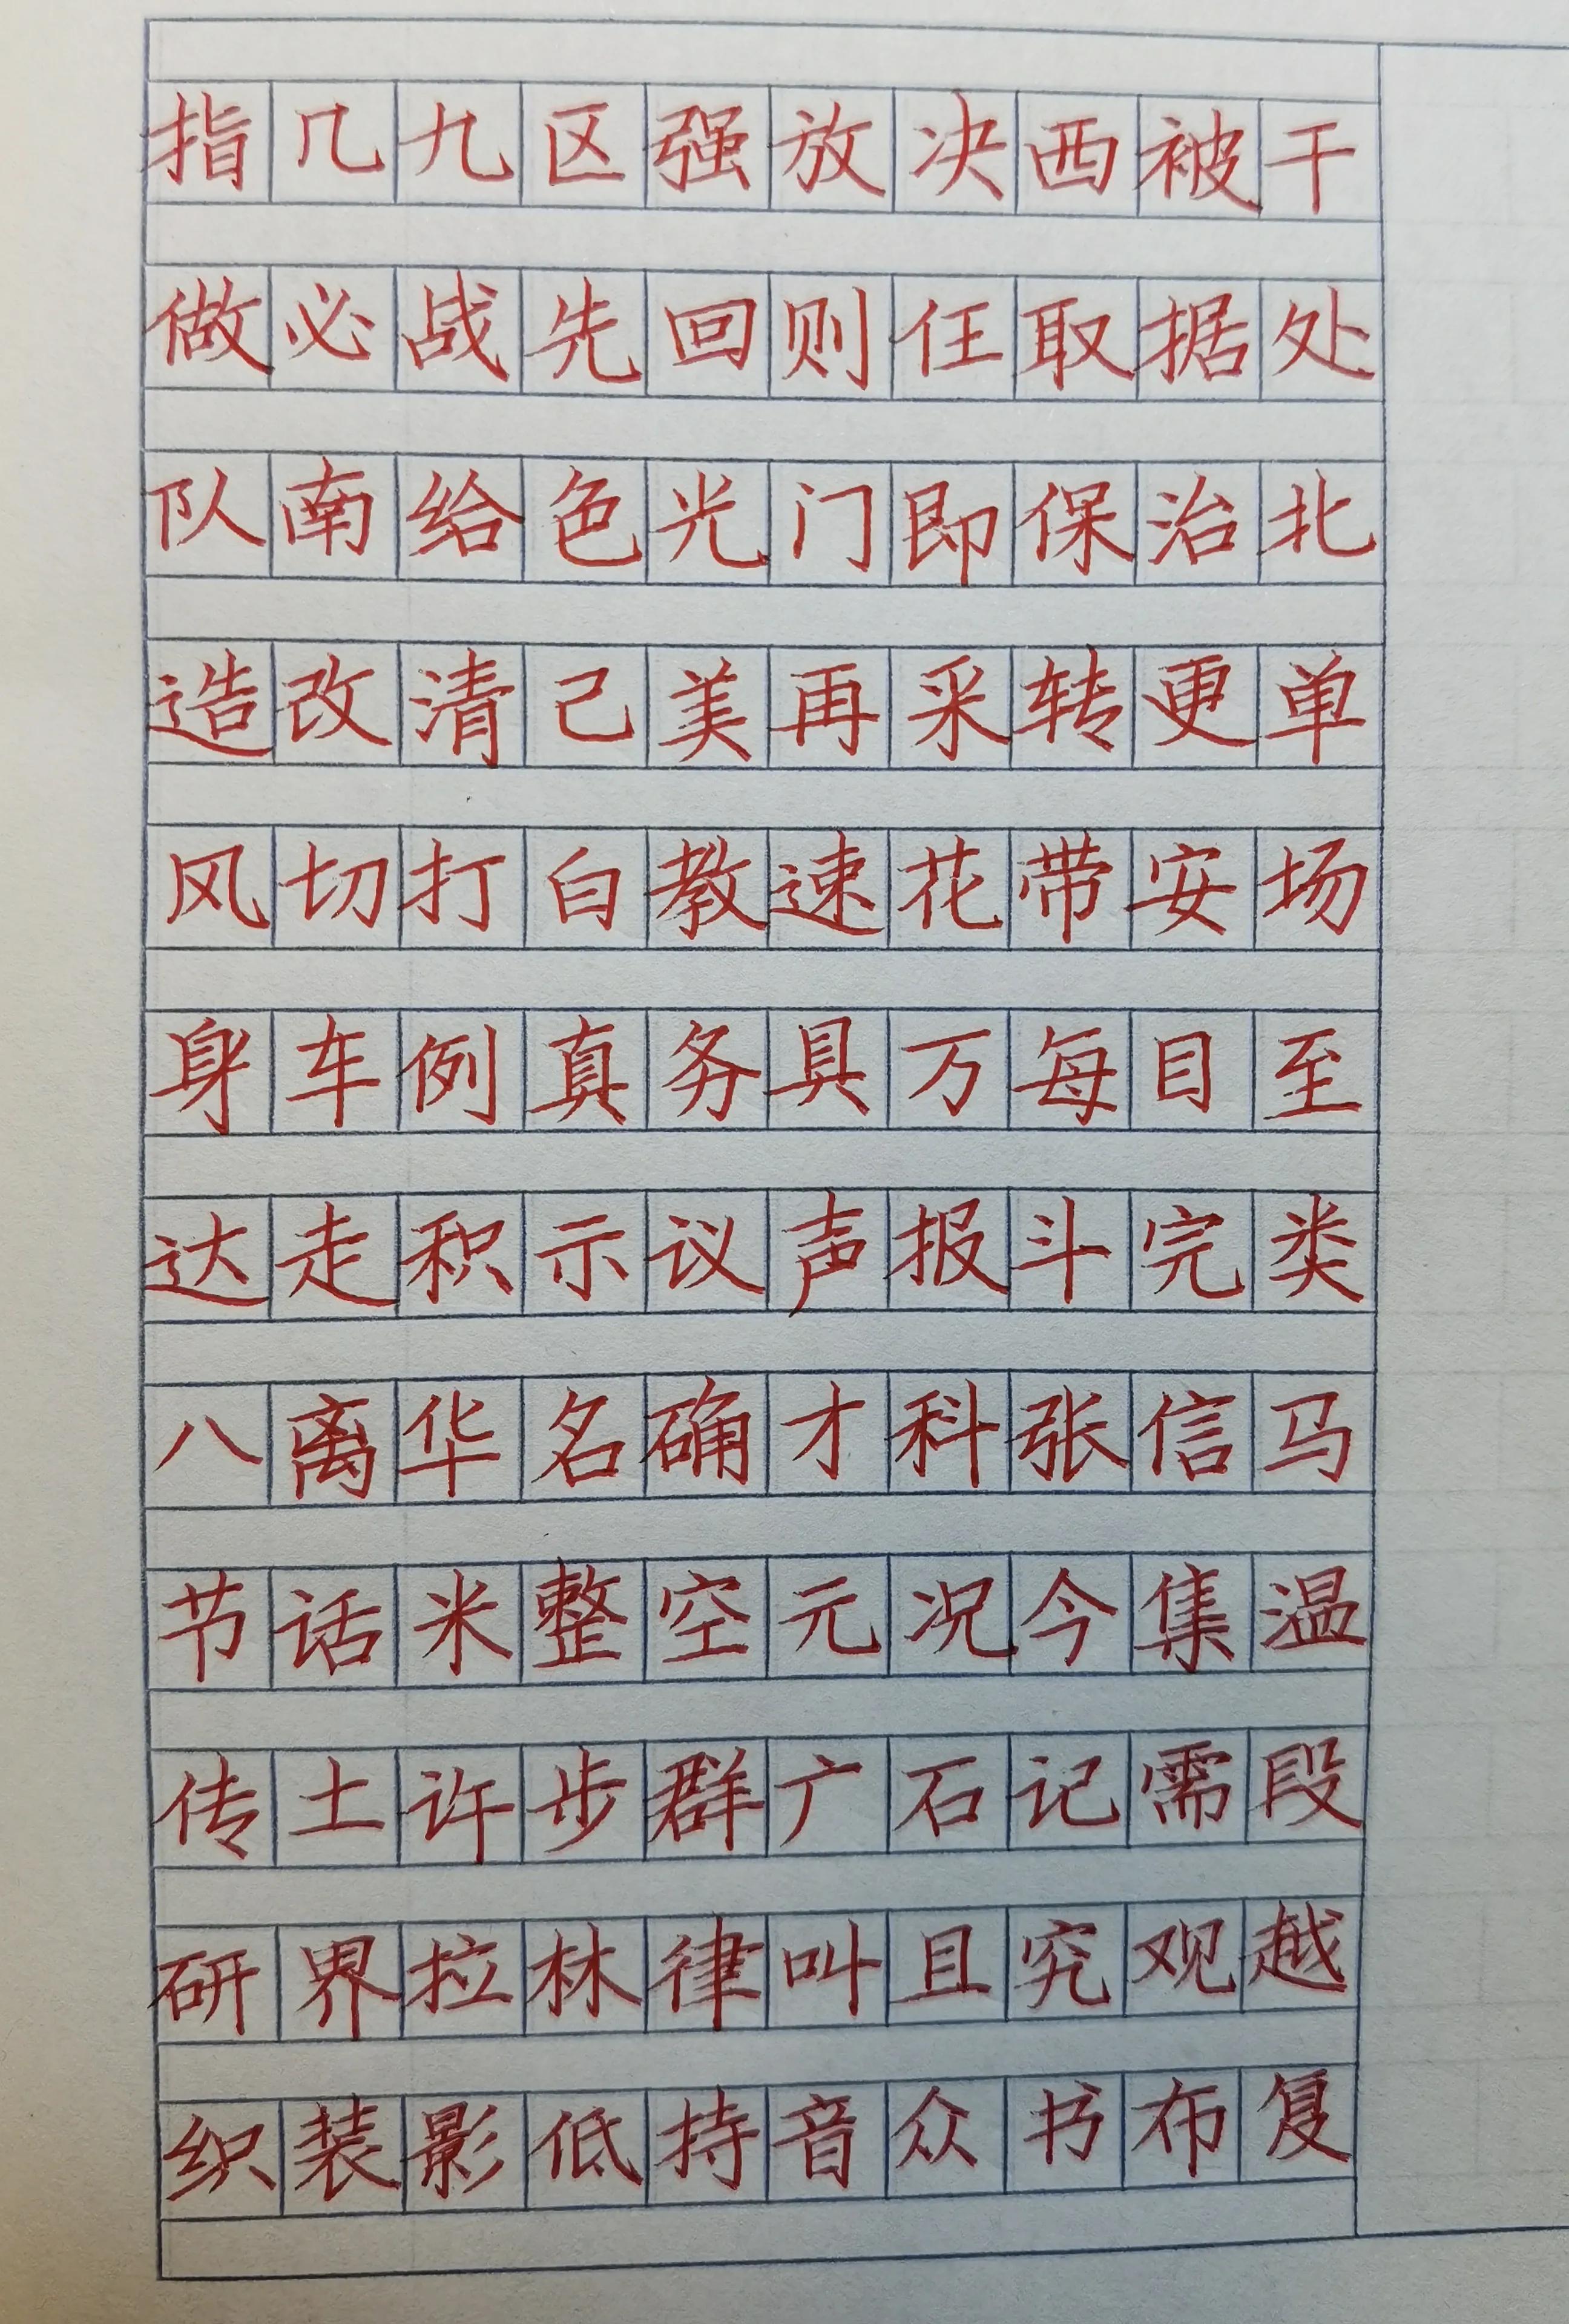 指几九区强放决西被干
做必战先回则任取据处
队南给色光门即保治北
造改清己美再采转更单
风切打白教速花带安场
身车例真务具万每目至
达走积示议声报斗完类
八离华名确才科张信马
节话米整空元况今集温
传土许步群广石记需段
研界拉林律叫且究观越
织装影低持音众书布复